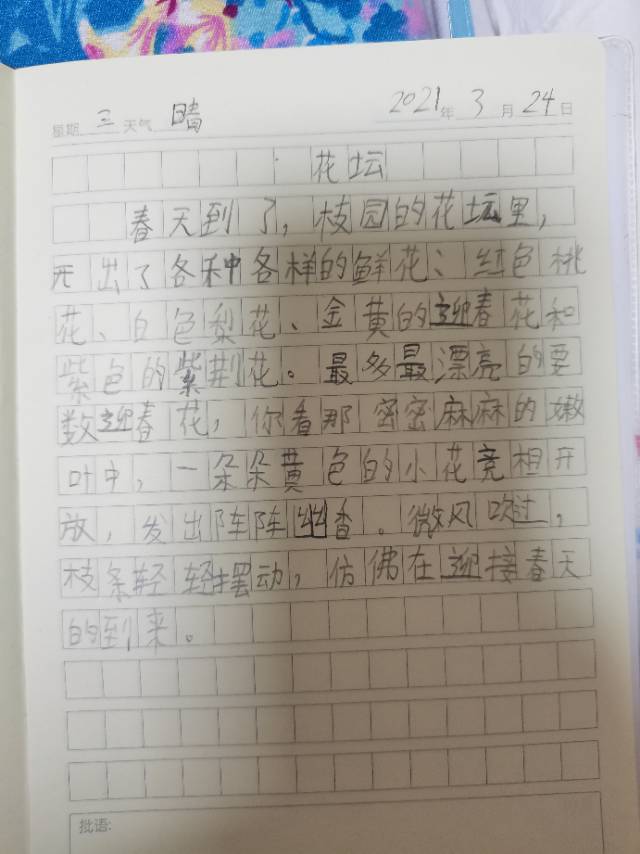 星期 三 天气 晴 2021年 3月 24日
花坛
春天到了，枝园的花坛里，
开出了各种各样的鲜花、红色桃
花、白色梨花、金黄的迎春花和
紫色的紫荆花。最多最漂亮的要
数迎春花，你看那密密麻麻的嫩
叶中，一朵朵黄色的小花竞相开
放，发出阵阵幽香。微风吹过，
枝条轻轻摆动，仿佛在迎接春天
的到来。
批语: